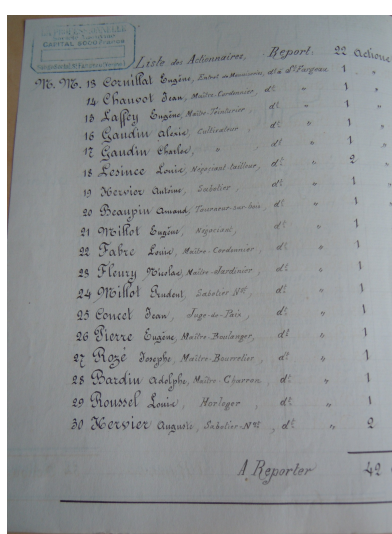 CAPITAL SOCIAL
Liste des Actionnaires, Report. 22 Actions
M. M. 13 Cornillat Eugène, à St Fargeau 1 "
14 Chauvot Jean, Maître-Cordonnier, dt " 1 "
15 Laffey Eugène, Maître-Teinturier, dt " 1 "
16 Gaudin Alexis, Cultivateur, dt " 1 "
17 Gaudin Charles, " dt " 1
18 Lesince Louis, Négociant tailleur, dt " 2
19 Hervier Antoine, Sabotier, dt " 1
20 Beaupin Amand, Tourneur-sur-bois, dt " 1
21 Millot Eugène, Négociant, dt " 1
22 Fabre Louis, Maître-Cordonnier, dt " 1
23 Fleury Nicolas, Maître-Jardinier, dt " 1
24 Millot Prudent, Sabotier-Nt, dt " 1
25 Concet Jean, Juge-de-Paix, dt " 1
26 Pierre Eugène, Maître-Boulanger, dt " 1
27 Rozé Joseph, Maître-Bourrelier, dt " 1
28 Bardin Adolphe, Maître-Charron, dt " 1
29 Roussel Louis, Horloger, dt " 1
30 Hervier Auguste, Sabotier-Nt, dt " 2
A Reporter 42